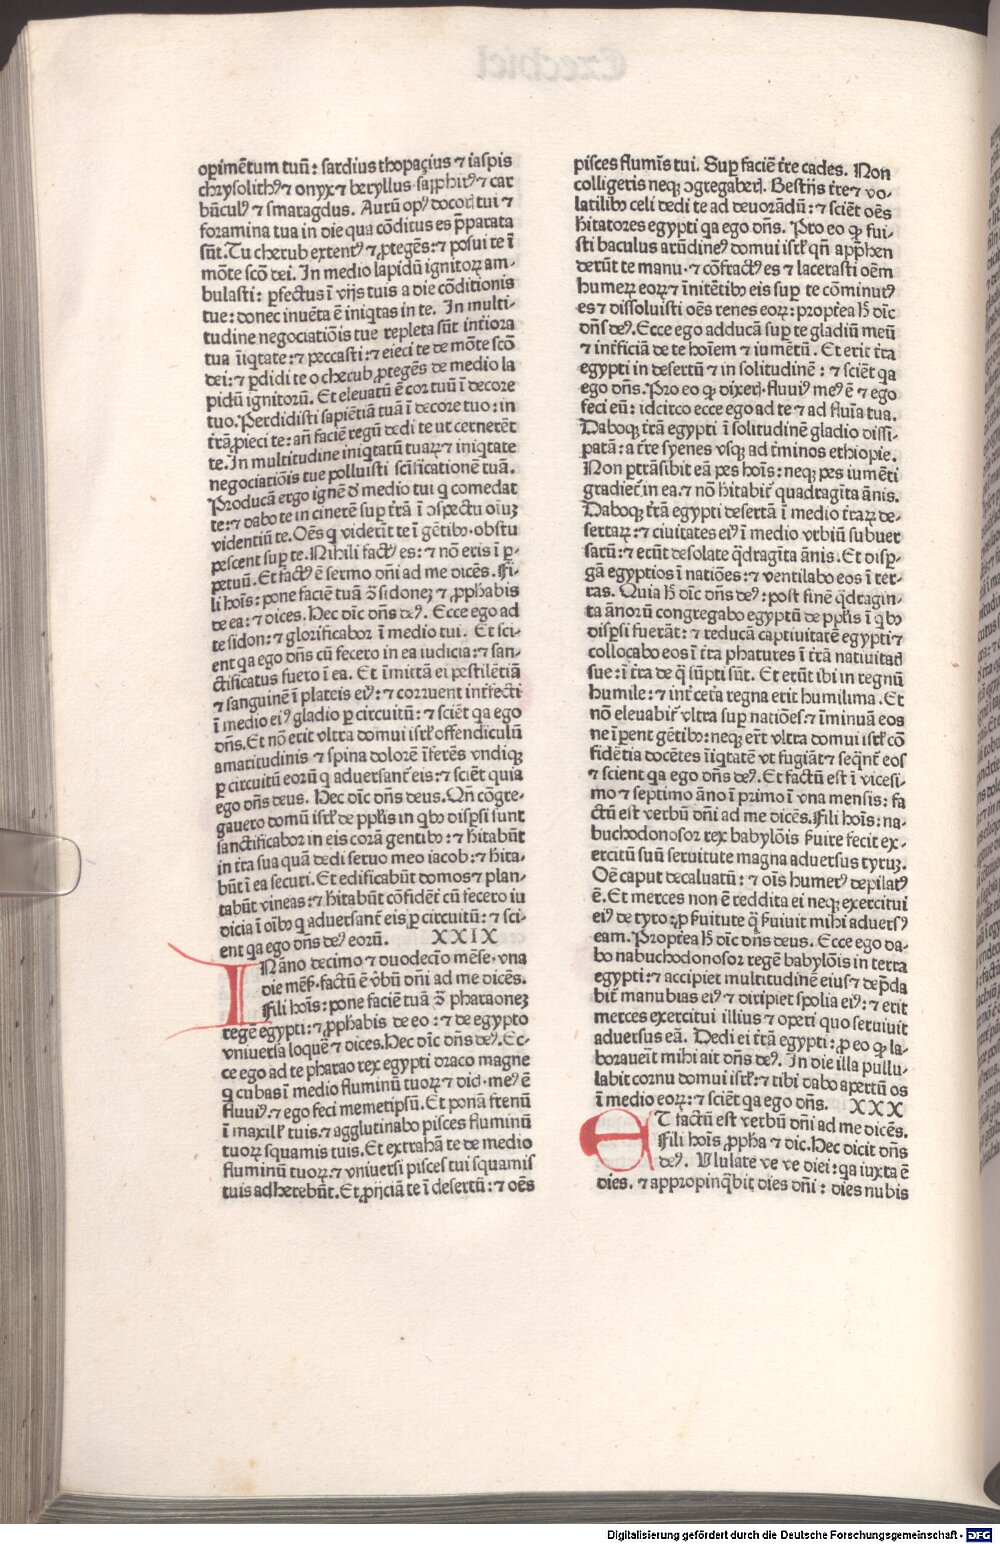 operimētum tuū: sardius thopaçius ⁊ iaspis
chrysolithꝰ⁊ onyx⁊ beryllus·saphirꝰ⁊ car
būculꝰ ⁊ smaragdus. Aurū opꝰ decoris tui ⁊
foramina tua in die qua cōditus es p̄parata
sūt. Tu cherub extentꝰ ⁊ ꝓtegēs: ⁊ posui te ī
mōte scō dei. In medio lapidū ignitoꝝ am-
bulasti: ꝑfectus ī vijs tuis a die cōditionis
tue: donec inuēta ē iniqtas in te. In multi-
tudine negociatiōis tue repleta sūt int̄iora
tua īiqtate: ⁊ peccasti: ⁊ eieci te de mōte scō
dei: ⁊ ꝑdidi te o cherub ꝓtegēs de medio la
pidū ignitorū. Et eleuatū ē cor tuū ī decore
tuo. Perdidisti sapiētiā tuā ī decore tuo: in
t̄rā ꝓieci te: an̄ faciē regū dedi te ut cernerēt
te. In multitudine iniqtatū tuaꝝ ⁊ iniqtate
negociatiōis tue polluisti scīficationē tuā.
Producā ergo ignē d̄ medio tui q comedat
te: ⁊ dabo te in cinerē suꝑ t̄rā ī ɔspectu oīuꝫ
videntiū te. Oēs q viderīt te ī gētibꝰ· obstu
pescent suꝑ te. Nihili factꝰ es: ⁊ nō eris ī ꝑ-
petuū. Et factꝰ ē sermo dn̄i ad me dicēs. Fi-
li hoīs: pone faciē tuā ɔ̄ sidoneꝫ ⁊ ꝓpħabis
de ea: ⁊ dices. Hec dīc dn̄s deꝰ. Ecce ego ad
te sidon: ⁊ glorificabor ī medio tui. Et sci-
ent qa ego dn̄s cū fecero in ea iudicia: ⁊ san-
ctificatus fuero ī ea. Et īmittā ei pestilētiā
⁊ sanguinē ī plateis eiꝰ: ⁊ corruent int̄fecti
ī medio eiꝰ gladio ꝑ circuitū: ⁊ sciēt qa ego
dn̄s. Et nō erit vltra domui isrł offendiculū
amaritudinis ⁊ spina dolorē īferēs vndiqꝫ
ꝑ circuitū eorū q aduersant̄ eis: ⁊ sciēt quia
ego dn̄s deus. Hec dīc dn̄s deus. Qn̄ cōgre-
gauero domū isrł de ppłis in qbꝰ disꝑsi sunt
sanctificabor in eis corā gentibꝰ: ⁊ ħitabūt
in t̄ra sua quā dedi seruo meo iacob: ⁊ ħita-
būt ī ea securi. Et edificabūt domos⁊ plan-
tabūt vineas: ⁊ ħitabūt cōfidēt̄ cū fecero iu
dicia ī oībꝰ q aduersant̄ eis ꝑ circuitū: ⁊ sci-
ent qa ego dn̄s deꝰ eorū. XXIX
IN āno decimo ⁊ duodecīo mēse· vna
die mēs̄· factū ē v̄bū dn̄i ad me dicēs.
Fili hoīs: pone faciē tuā ɔ̄ pharaoneꝫ
regē egypti: ⁊ ꝓpħabis de eo: ⁊ de egypto
vniuersa loquē ⁊ dices. Hec dīc dn̄s deꝰ. Ec-
ce ego ad te pharao rex egypti draco magne
q cubas ī medio fluminū tuoꝝ ⁊ dicis· meꝰ ē
fluuiꝰ: ⁊ ego feci memetipsū. Et ponā frenū
ī maxilł tuis. ⁊ agglutinabo pisces fluminū
tuoꝝ squamis tuis. Et extrahā te de medio
fluminū tuoꝝ. ⁊ vniuersi pisces tui squamis
tuis adherebūt. Et ꝓijciā te ī desertū: ⁊ oēs
pisces flumīs tui. Suꝑ faciē t̄re cades. Non
colligeris neqꝫ ɔgregaberꝭ. Bestijs t̄re⁊ vo-
latilibꝰ celi dedi te ad deuorādū: ⁊ sciēt oēs
ħitatores egypti qa ego dn̄s. Pro eo ꝙ fui-
sti baculus arūdineꝰ domui isrł qn̄ appħen
derūt te manu·⁊ cōfractꝰ es ⁊ lacerasti oēm
humeꝝ eoꝝ: ⁊ īnitētibꝰ eis suꝑ te cōminutꝰ
es ⁊ dissoluisti oēs renes eoꝝ: propt̄ea ħ dīc
dn̄s deꝰ. Ecce ego adducā suꝑ te gladiū meū
⁊ int̄ficiā de te hoīem ⁊ iumētū. Et erit t̄ra
egypti in desertū ⁊ in solitudinē: ⁊ sciēt qa
ego dn̄s. Pro eo ꝙ dixerꝭ· fluuiꝰ meꝰ ē ⁊ ego
feci eū: idcirco ecce ego ad te ⁊ ad fluīa tua.
Daboqꝫ t̄rā egypti ī solitudinē gladio dissi-
patā: a t̄re syenes vsqꝫ ad t̄minos ethiopie.
Non pt̄rāsibit eā pes hoīs: neqꝫ pes iumēti
gradiet̄ in ea. ⁊ nō ħitabit̄ quadragīta ānis.
Daboqꝫ t̄rā egypti desertā ī medio t̄raꝝ de-
sertaꝝ: ⁊ ciuitates eiꝰ ī medio vrbiū subuer
sarū: ⁊ erūt desolate q̄dragīta ānis. Et disꝑ-
gā egyptios ī natiōes: ⁊ ventilabo eos ī ter-
ras. Quia ħ dīc dn̄s deꝰ: post finē q̄dragin-
ta ānorū congregabo egyptū de ppłis ī qbꝰ
disꝑsi fuerāt: ⁊ reducā captiuitatē egypti⁊
collocabo eos ī t̄ra phatures ī t̄rā natiuitaꝭ
sue: ī t̄ra de q̄ sūpti sūt. Et erūt ibi in regnū
humile: ⁊ int̄ cet̄a regna erit humilima. Et
nō eleuabit̄ vltra suꝑ natiōes: ⁊ īminuā eos
ne īꝑent gētibꝰ: neqꝫ er̄t vltra domui isrł cō
fidētia docētes īiqtatē vt fugiāt⁊ seq̄nt̄ eos
⁊ scient qa ego dn̄s deꝰ. Et factū est ī vicesi-
mo ⁊ septimo āno ī primo ī vna mensis: fa
ctū est verbū dn̄i ad me dicēs. Fili hoīs: na-
buchodonosor rex babylōis ẜuire fecit ex-
ercitū suū seruitute magna aduersus tyruꝫ.
Oē caput decaluatū: ⁊ oīs humerꝰ depilatꝰ
ē. Et merces non ē reddita ei neqꝫ exercitui
eiꝰ de tyro: ꝓ ẜuitute q̄ ẜuiuit mihi aduersꝰ
eam. Propt̄ea ħ dīc dn̄s deus. Ecce ego da-
bo nabuchodonosor regē babylōis in terra
egypti: ⁊ accipiet multitudinē eius⁊ dep̄da
bit̄ manubias eiꝰ ⁊ diripiet spolia eiꝰ: ⁊ erit
merces exercitui illius ⁊ operi quo seruiuit
aduersus eā. Dedi ei t̄rā egypti: ꝓ eo ꝙ la-
borauerīt mihi ait dn̄s deꝰ. In die illa pullu-
labit cornu domui isrł: ⁊ tibi dabo apertū os
ī medio eoꝝ: ⁊ sciēt qa ego dn̄s. XXX
ET factū est verbū dn̄i ad me dicēs.
Fili hoīs ꝓpħa ⁊ dic. Hec dicit dn̄s
deꝰ. Ululate ve ve diei: qa iuxta ē
dies. ⁊ appropinq̄bit dies dn̄i: dies nubis
Digitalisierung gefördert durch die Deutsche Forschungsgemeinschaft - DFG